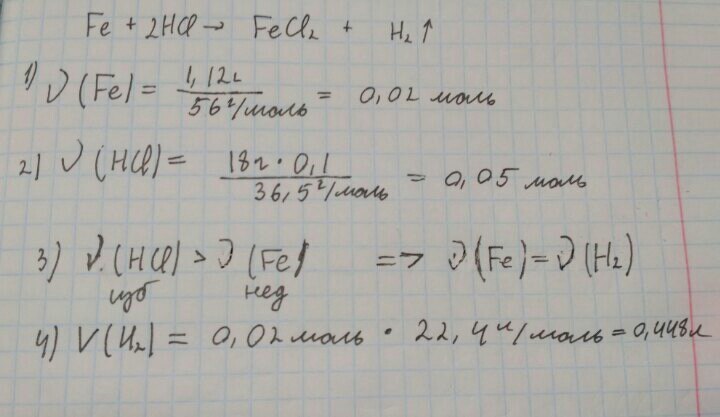 Fe + 2HCl → FeCl₂ + H₂↑
1) ν(Fe) = 1,12г / 56 г/моль = 0,02 моль
2) ν(HCl) = 18г · 0,1 / 36,5 г/моль = 0,05 моль
3) ν(HCl) > ν(Fe) => ν(Fe) = ν(H₂)
изб нед
4) V(H₂) = 0,02 моль · 22,4 л/моль = 0,448л